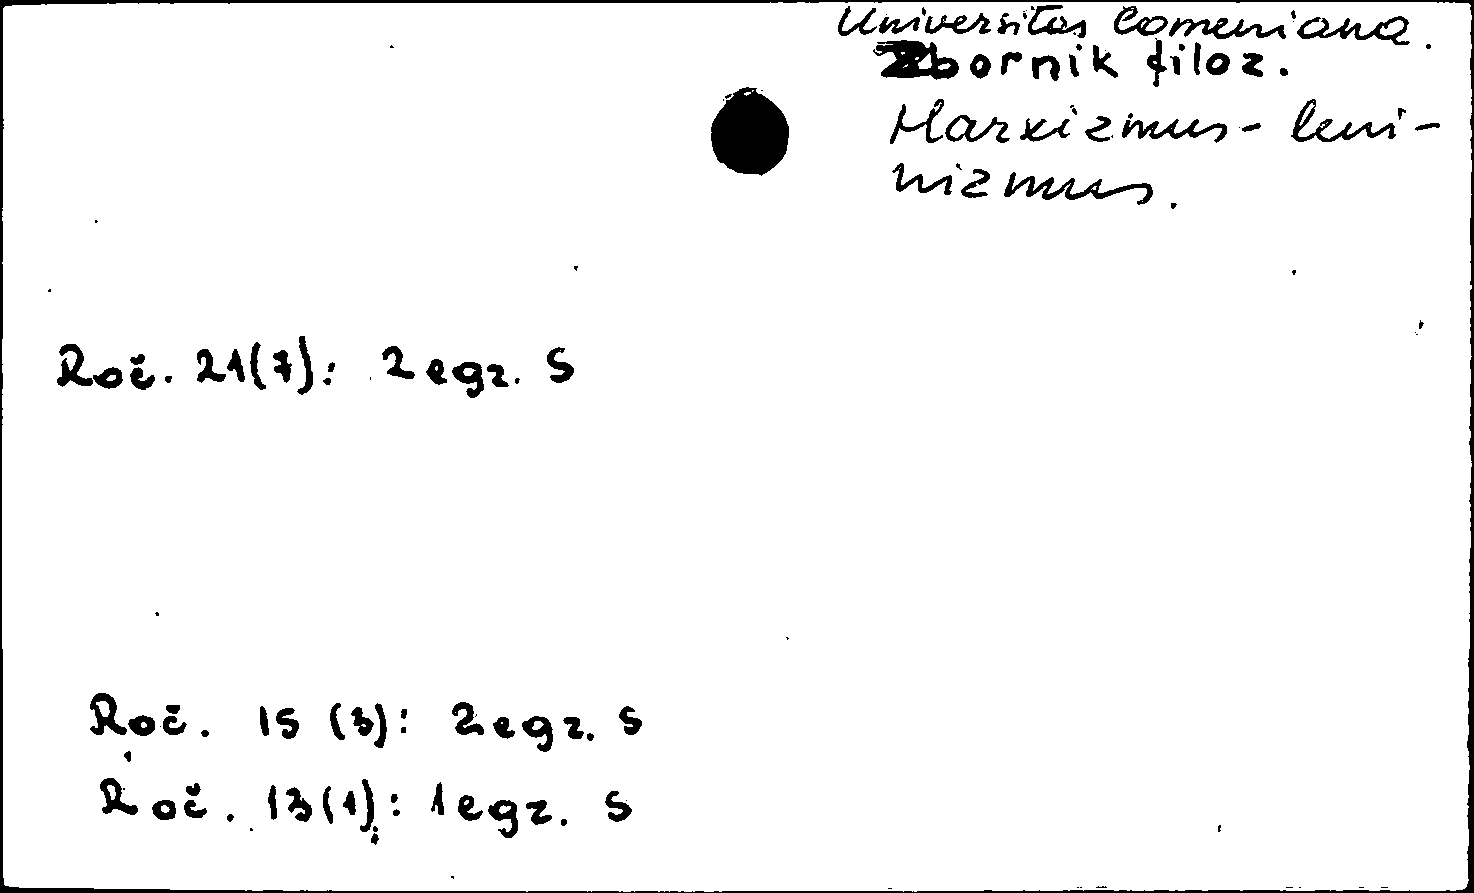 Universitas Comeniana.
Zbornik filoz.
Marxizmus-leni-
nizmus.
Roč. 21(7): 2 egz. S
Roč. 15 (3): 2 egz. S
Roč. 13(1): 1 egz. S